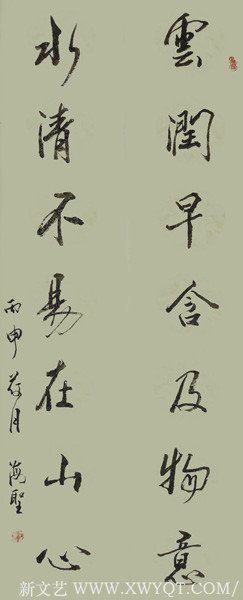 雲潤早含及物意
水清不易在山心
丙申荷月海聖
新文艺 WWW.XWYQT.COM/